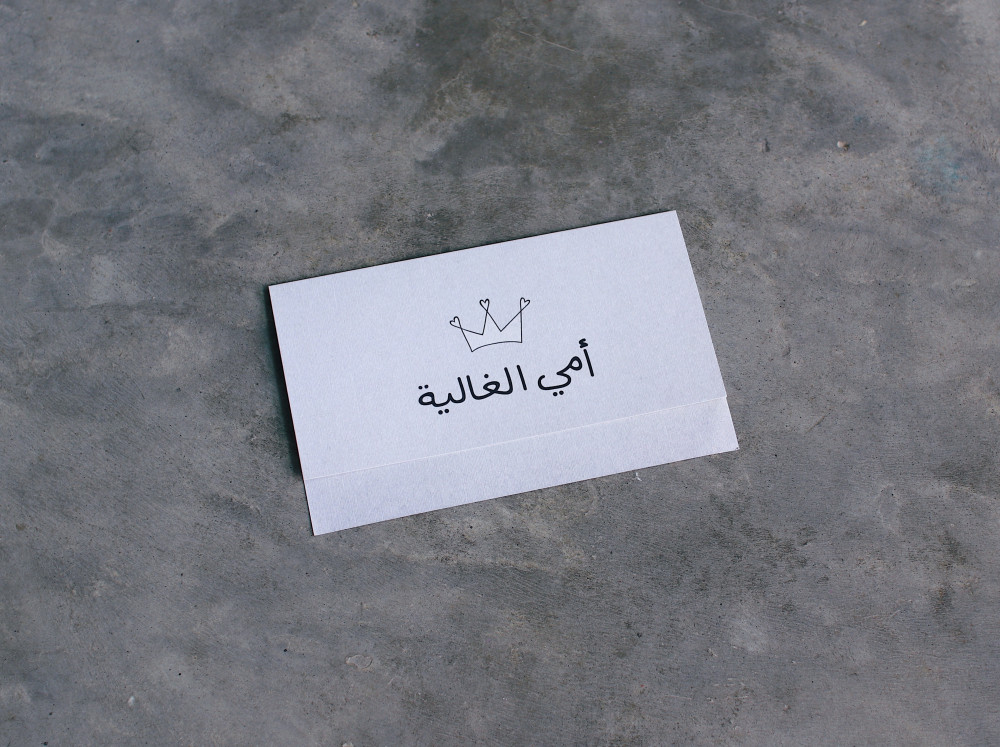 أمي الغالية